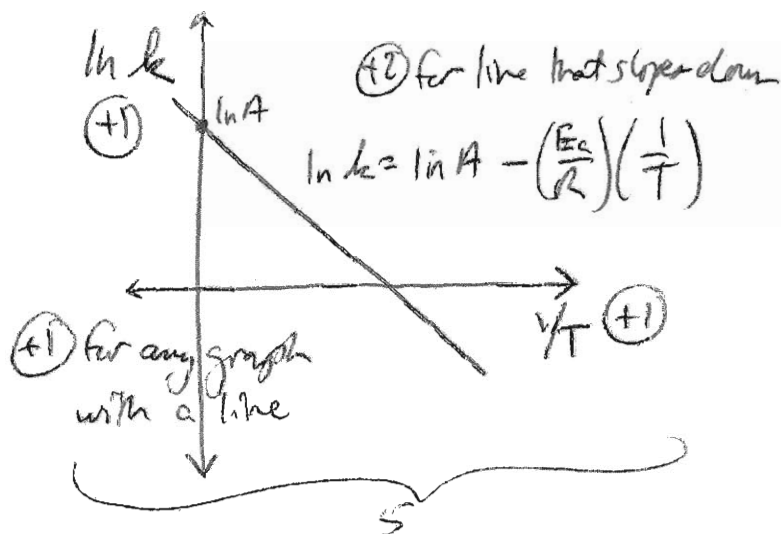 ln k
+1
ln A
+2 for line that slopes down
ln k = ln A - (Ea/R)(1/T)
1/T +1
+1 for any graph
with a line
5